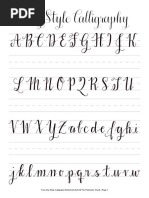 Style Calligraphy
A B C D E F G H I J K
L M N O P Q R S T U
V W X Y Z a b c d e f g h i
j k l m n o p q r s t u v w